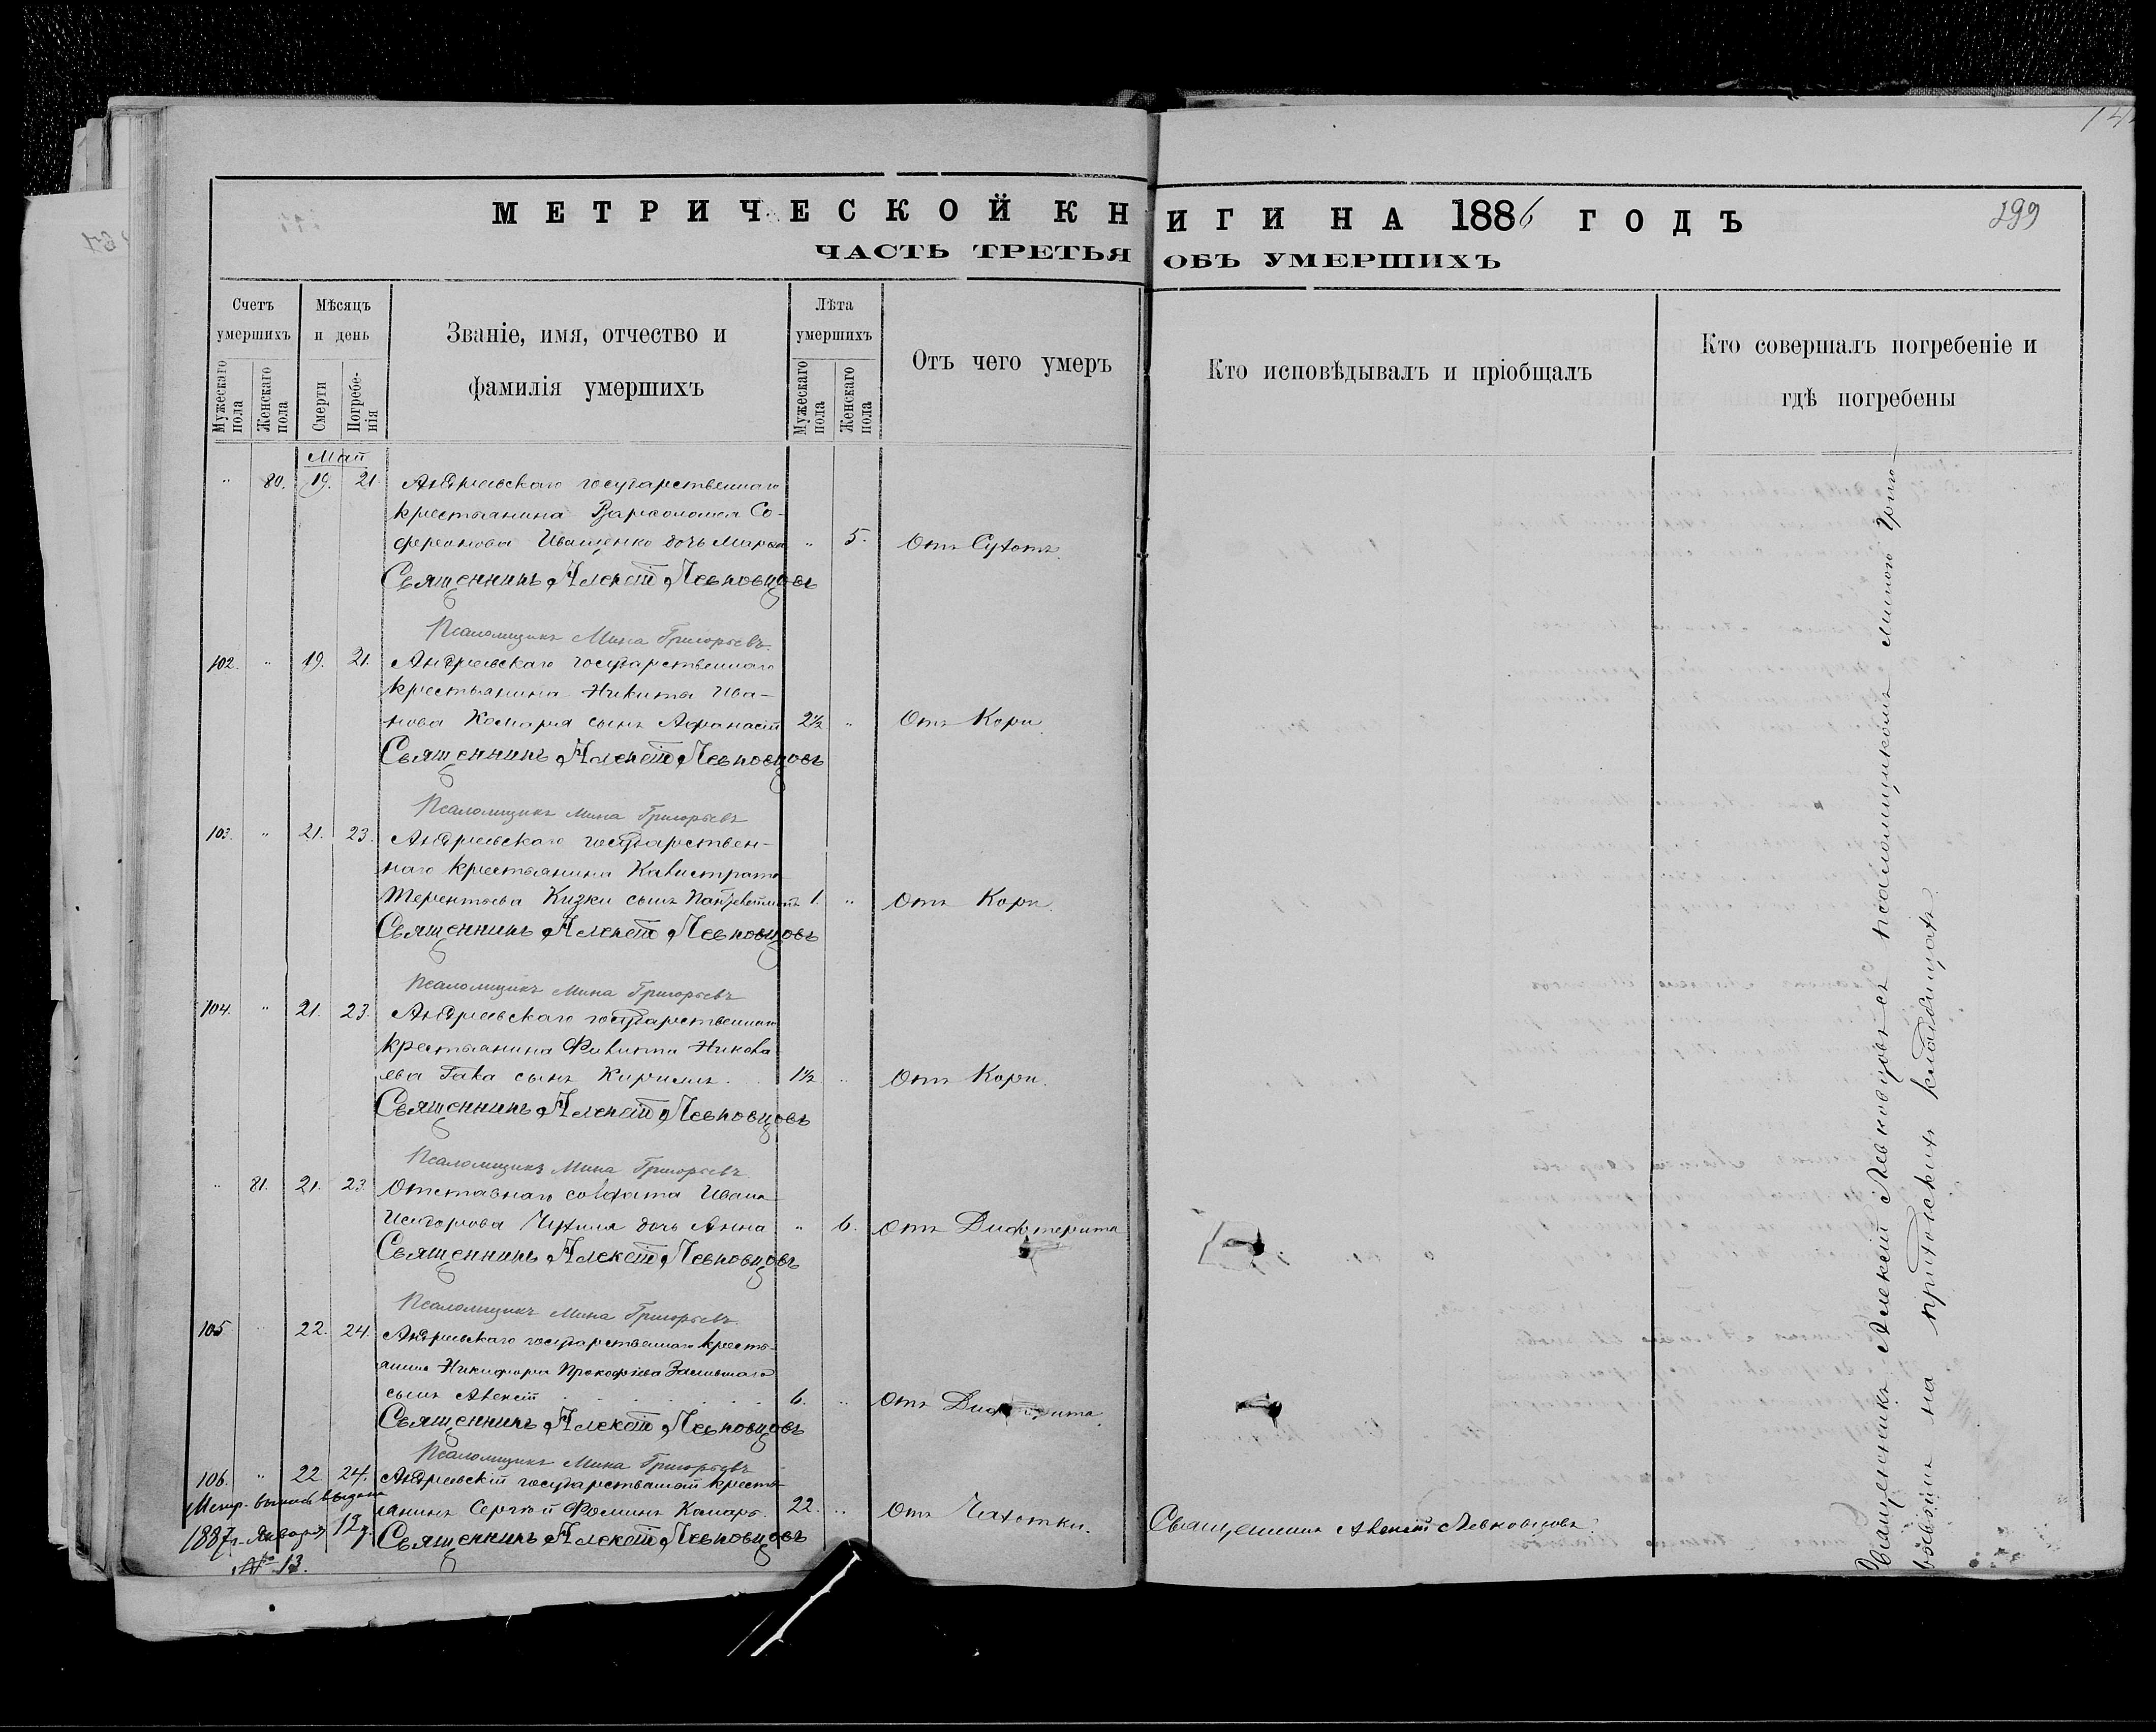 299
МЕТРИЧЕСКОЙ КНИГИ НА 1886 ГОДЪ
ЧАСТЬ ТРЕТЬЯ ОБЪ УМЕРШИХЪ
Счетъ умершихъ
Мужескаго пола
Женскаго пола
Мѣсяцъ и день
Смерти
Погребенія
Званіе, имя, отчество и фамилія умершихъ
Лѣта умершихъ
Мужескаго пола
Женскаго пола
Отъ чего умеръ
Кто исповѣдывалъ и пріобщалъ
Кто совершалъ погребеніе и гдѣ погребены
Май
" 80. 19. 21. Андреевскаго государственнаго
крестьянина Варфоломея Со-
Иващенко дочь Марѳа " 5. Отъ Сухотъ.
Священникъ Алексѣй Левковцовъ
Псаломщикъ Мина Григорьевъ
102. " 19. 21. Андреевскаго государственнаго
крестьянина Никиты Ива-
нова Комаря сынъ Афанасій 2½ " Отъ Кори.
Священникъ Алексѣй Левковцовъ
Псаломщикъ Мина Григорьевъ
103. " 21. 23. Андреевскаго государствен-
наго крестьянина Калистрата
Терентьева Кизки сынъ 1. " Отъ Кори.
Священникъ Алексѣй Левковцовъ
Псаломщикъ Мина Григорьевъ
104. " 21. 23. Андреевскаго государственнаго
крестьянина Филипа Никола
ева Гака сынъ Кирилъ. 1½ " Отъ Кори.
Священникъ Алексѣй Левковцовъ
Псаломщикъ Мина Григорьевъ
" 81. 21. 23. Отставнаго солдата Ивана
Исидорова дочь Анна " 6. Отъ Дифтерита
Священникъ Алексѣй Левковцовъ
Псаломщикъ Мина Григорьевъ
105 " 22. 24. Андреевскаго государственнаго кресть-
янина Никифора Прокофіева
сынъ Алексѣй 6. " Отъ Дифтерита.
Священникъ Алексѣй Левковцовъ
Псаломщикъ Мина Григорьевъ
106. " 22 24. Андреевскій государственный кресть
янинъ Сергѣй Фоминъ Комарь. 22. " Отъ Чахотки. Священникъ Алексѣй Левковцовъ.
Священникъ Алексѣй Левковцовъ
Метр. выпись выдана
1887 г. Января 12 д.
№ 13.
Священникъ Алексѣй Левковцовъ съ псаломщикомъ Миною Григо-
рьевымъ на приходскихъ кладбищахъ.